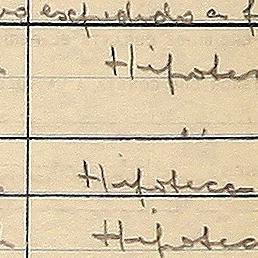 expedido a
Hipotec
"
Hipoteca
Hipotec